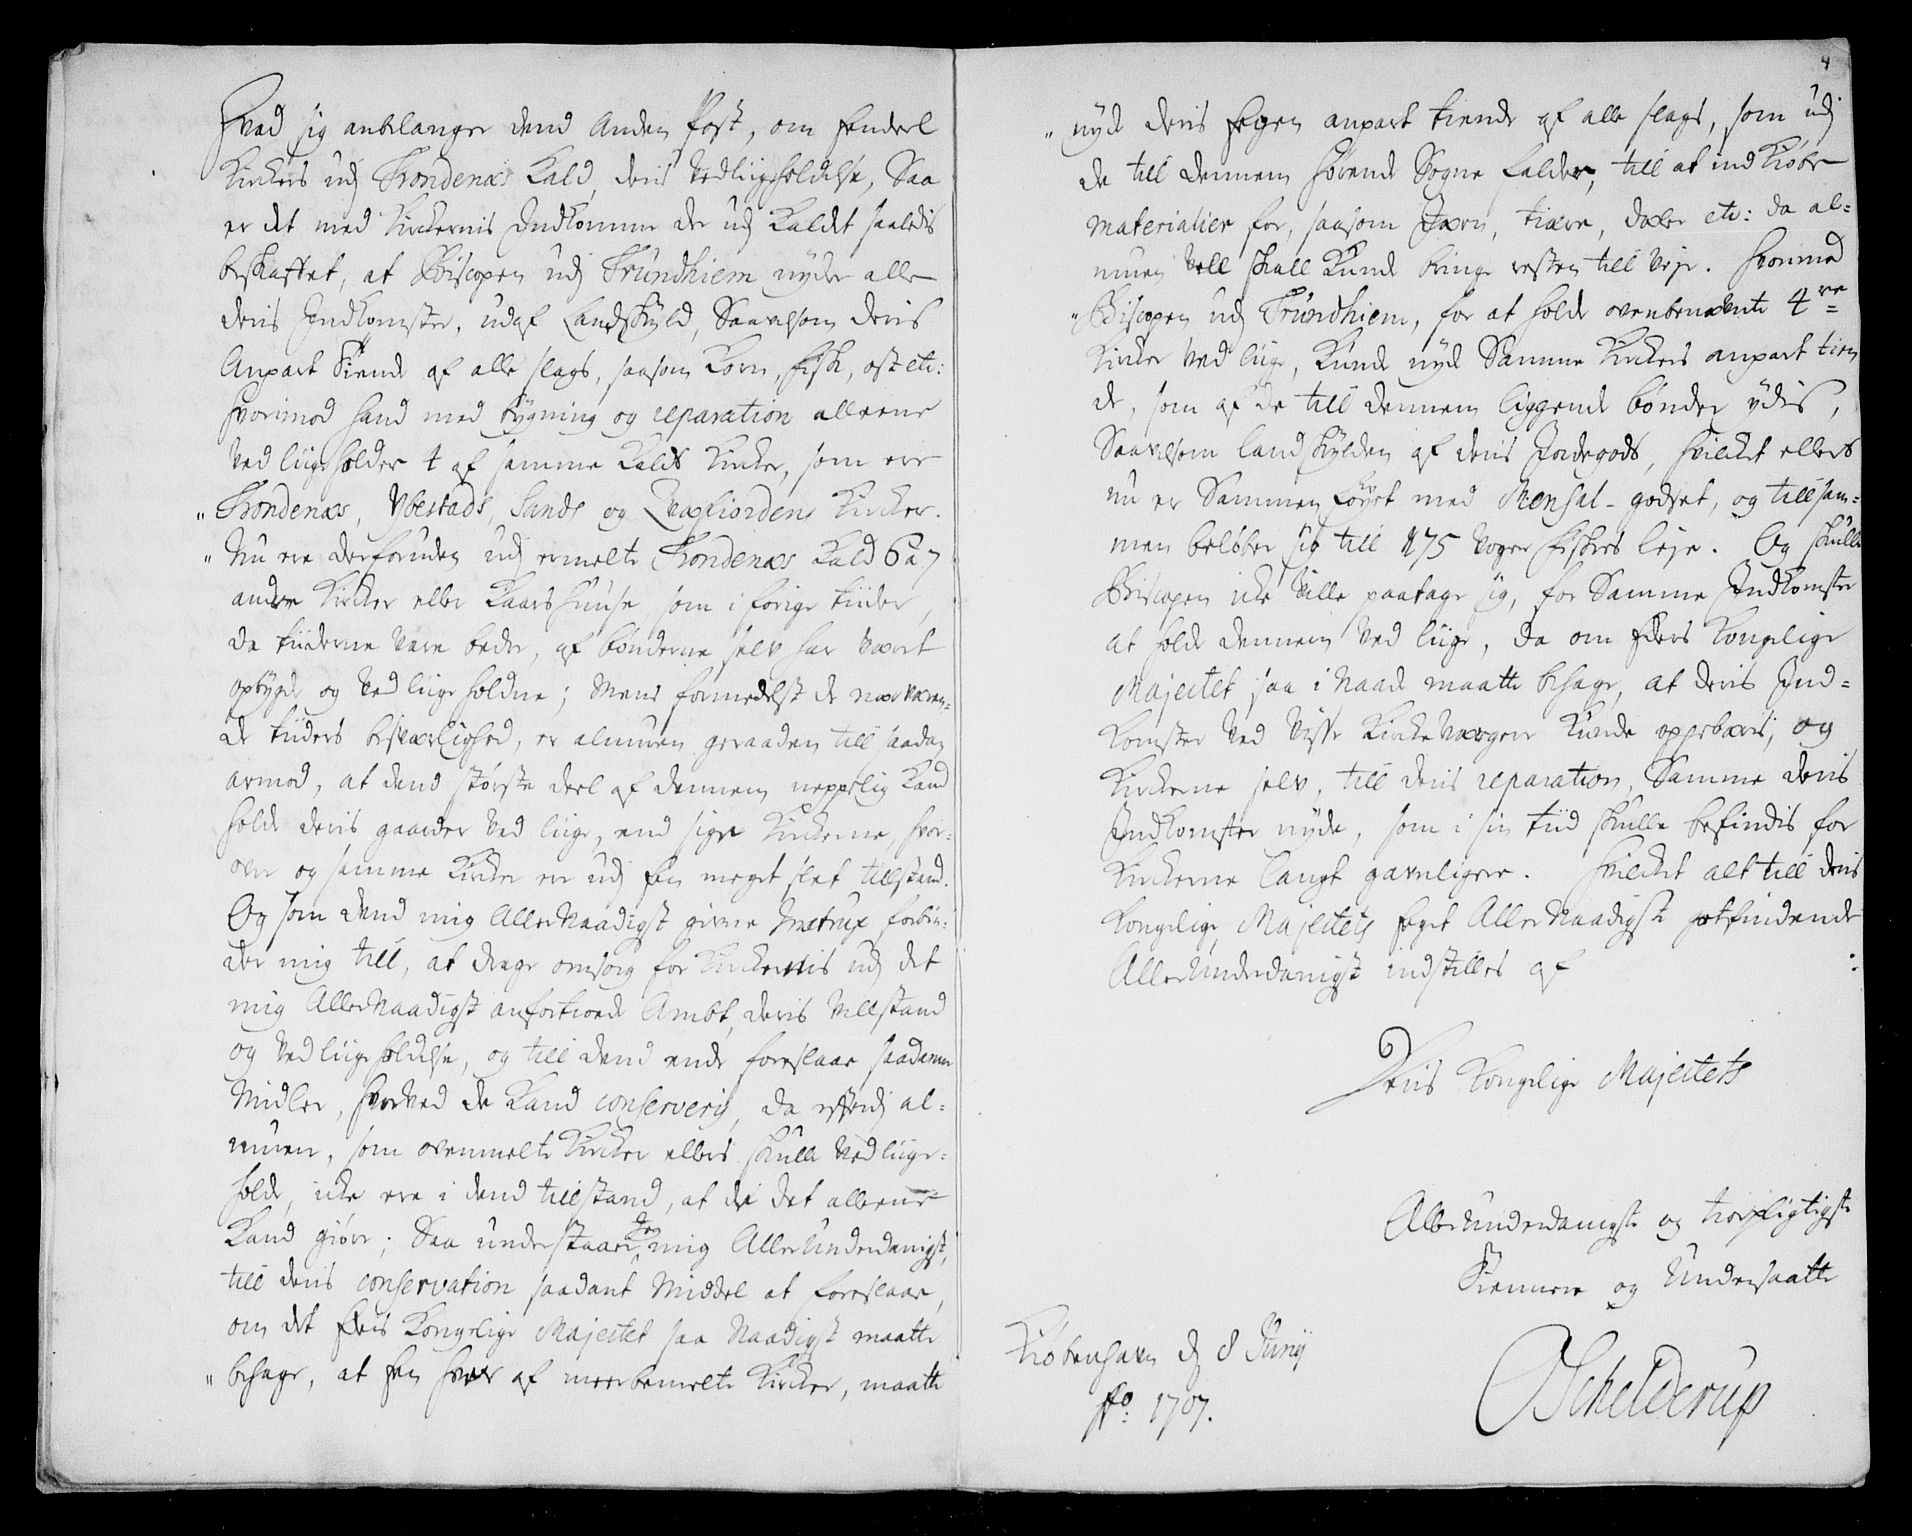 Hvad sig anbelanger dend Anden Post, om Eendeel
Kirkers udj Trondenæs Kald, deris Vedliigeholdelse, Saa
er det med Kirkernis Indkomme der udj Kaldet saaledis
beskaffet, at Biscopen udj Trundhiem nyder alle
deris Indkomster, udaf Landskyld, Saavelsom deris
Anpart Tiende af alle slags, saasom Korn, fisk, ost etc:
hvorimod hand med bygning og reparation alleene
ved liige holder 4 af samme Kalds Kirker, som ere
" Trondenæs, Ybestads, Sands og Qvæfiordens Kirker.
" Nu ere derforuden udj ermelte Trondenæs Kald 6 a 7
andre Kirker eller Kaars Huuse, som i forige tiider,
da tiiderne vare beder, af bønderne selv har været
opbygde og ved liige holdne; Mens formedelst de nærværen-
de tiiders besværlighed, er almuen geraaden till saadan
armod, at dend største deel af dennem neppelig kand
holde deris gaarder ved liige, end sige Kirkerne, hvor-
over og samme Kirker ere udj Een meget slet tillstand.
Og som dend mig AllerNaadigst givne Instrux forbin-
der mig till, at drage omsorg for Kirkernis udj det
mig AllerNaadigst anfortroede Ambt, deris Velstand
og ved liige holdelse, og till dend ende foreslaae saadanne
Midler, hvorved de kand conserveris, da efterdj al-
muen, som ovenmelte Kirker ellers skulle ved liige-
holde, icke ere i dend tillstand, at de det alleene
Kand giøre; Saa understaaer Jeg mig AllerUnderdanigst,
till deris conservation saadant Middel at foreslaae,
om det Eders Kongelige Majestet saa Naadigst maatte
" behage, at Een hver af meerbemelte Kirker, maatte
4
" nyde deris Egen anpart tiende af alle slags, som udj
de till dennem hørende Sogne falder, till at indkiøbe
materialier for, saasom Jærn, tiære, dæler etc: da al-
muen vell skall kunde bringe resten till veje. Hvorimod
" Biscopen udj Trundhiem, for at holde ovenbenævnte 4re
Kirker ved liige, kunde nyde Samme Kirkers anpart tien
de, som af de till dennem liggende bønder ydis,
Saavelsom landskylden af deris Jordegods, hvilket ellers
nu er Sammenføyet med Mensal-godset, og till sam-
men beløber sig till 175 voger fiskes leje. Og skulle
Biscopen icke ville paatage sig, for Samme Indkomster
at holde dennem ved liige, da om Eders Kongelige
Majestet saa i Naade maatte behage, at deris Ind-
komster ved visse Kirkeværgere kunde oppebæris, og
Kirkerne selv, till deris reparation, Samme deris
Indkomster nyde, som i sin tiid skulle befindis for
Kirkerne langt gavnligere. Hvilket alt till deris
Kongelige Majestets Eget AllerNaadigste gotfindende
AllerUnderdanigst indstilles af
Deris Kongelige Majestets
AllerUnderdanigste og troepligtigste
Tiennere og Undersaatte
Kiøbenhavn d 8 Junij
Ao: 1707.
OSchelderup